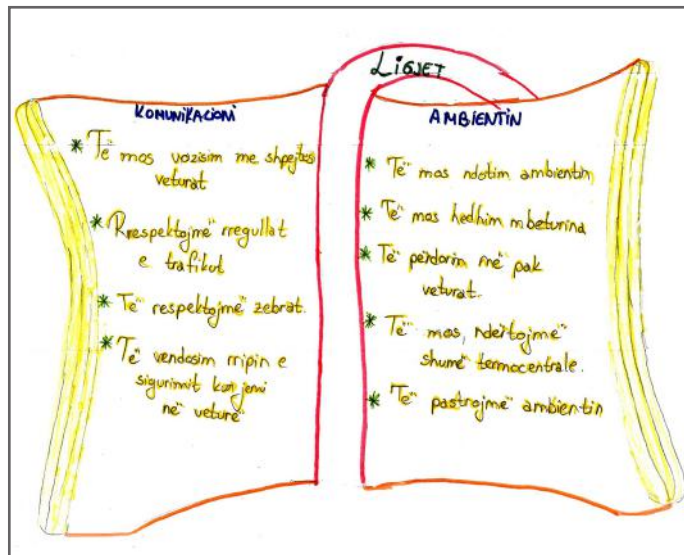 LIGJET
KOMUNIKACIONI
* Të mos vozisim me shpejtësi
veturat
* Rrespektojmë rregullat
e trafikut
* Të respektojmë zebrat.
* Të vendosim rripin e
sigurimit kur jemi
në veturë
AMBIENTIN
* Të mos ndotim ambientin
* Të mos hedhim mbeturina
* Të përdorim më pak
veturat.
* Të mos, ndërtojmë
shumë termocentrale.
* Të pastrojmë ambientin